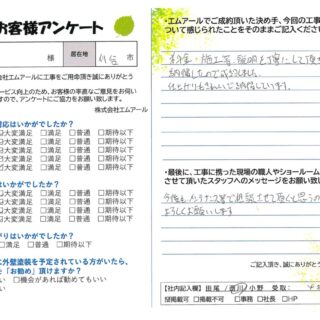 お客様アンケート
様 居在地 仙台 市
会社エムアールに工事をご用命頂き誠にありがとう
ービス向上のため、お客様の率直なご意見をお伺い
すので、アンケートにご協力をお願い致します。
株式会社エムアール
対応はいかがでしたか?
大変満足 □満足 □普通 □期待以下
大変満足 □満足 □普通 □期待以下
大変満足 □満足 □普通 □期待以下
大変満足 □満足 □普通 □期待以下
はいかがでしたか?
大変満足 □満足 □普通 □期待以下
大変満足 □満足 □普通 □期待以下
大変満足 □満足 □普通 □期待以下
がりはいかがでしたか?
□満足 □普通 □期待以下
に外壁塗装を予定されている方がいたら、
を「お勧め」頂けますか?
い □機会があれば勧めてもいい
い
・エムアールでご成約頂いた決め手、今回の工事に
ついて感じられたことをそのままご記入ください。
料金・施工等、説明を頂
納得したので
仕上りもきれいで納得しています。
・最後に、工事に携った現場の職人やショールーム
させて頂いたスタッフへのメッセージをお願い致
今後もメンテナンス等で
よろしくお願いします
ご記入頂き、誠にありがとう
【社内記入欄】 田尾 小野
□掲載可 □掲載不可 □事務 □社長 □HP